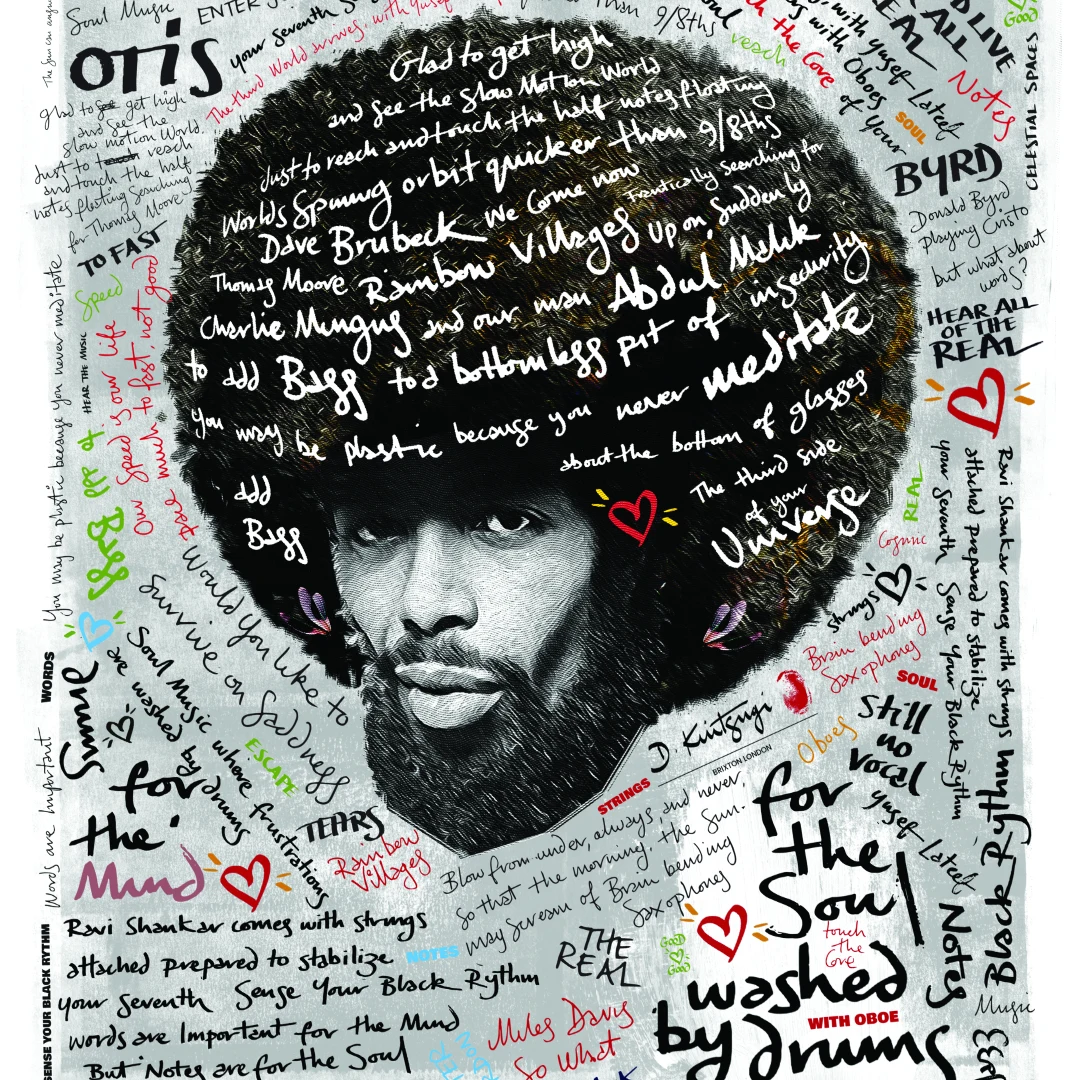 Soul Music
ENTER
your seventh
The third World survives, with Yusef
oris
9/8ths
Soul
reach
the Core
of Your
with Yusef Lateef
with Oboes
SOUL
REAL
ALL
LIVE
Notes
Good
CELESTIAL SPACES
Glad to see get high
and see the
slow motion World
Just to touch reach
and touch the half
notes floating Searching
for Thomas Moore
TO FAST
Speed
HEAR THE MUSIC
Our Speed is our life
pace much to fast not good
You may be plastic because you never meditate
add Bass
Glad to get high
and see the slow Motion World
Just to reach and touch the half notes floating
Worlds Spinning orbit quicker than 9/8ths
Dave Brubeck We Come now
Frantically Searching for
Thomas Moore Rainbow Villages Up on, Suddenly
Charlie Mungus and our man Abdul Malik
to add Bass to a bottomless pit of insecurity
you may be plastic because you never meditate
about the bottom of glasses
The third side
of your
Universe
add
Bass
BYRD
Donald Byrd
Playing Cristo
but what about
words?
HEAR ALL
OF THE
REAL
REAL
Cosmic
Ravi Shankar comes with strings
attached prepared to stabilize
your Seventh Sense Your Black Rythm
strings
Brain bending
Saxophones
SOUL
Would You like to
Survive on Saddness
Soul Music where frustrations
are washed by drums
ESCAPE
WORDS
Words are Important
for
the
Mind
TEARS
Rainbow
Villages
D. Kintsugi
BRIXTON LONDON
STRINGS
Oboes
Blow from under, always, and never,
So that the morning, the Sun.
may scream of Brain bending
Saxophones
Still
no
vocal
Yusef Lateef
Notes
Black Rythm
Music
for
the
Soul
touch
the
Core
washed
by drums
WITH OBOE
GOOD
GOOD
THE
REAL
NOTES
Miles Davis
So What
SENSE YOUR BLACK RYTHM
Ravi Shankar comes with strings
attached prepared to stabilize
your Seventh Sense Your Black Rythm
words are Important for the Mind
But Notes are for the Soul